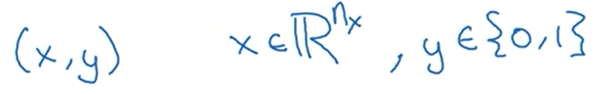 (x,y) x∈ℝ^{n_x}, y∈{0,1}